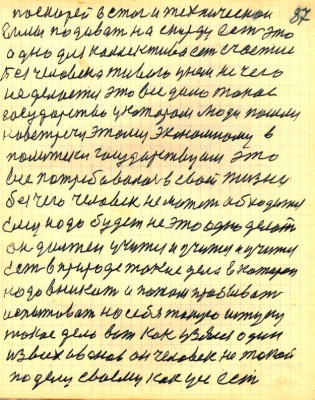 поскорей в стог и технической 87
силы подавать на скирду есть это
одно для коллектива есть счастие
без человека живого унас не чего
не делается это все дило такое
государство укотором люди пошли
навстречу этому экономному в
политеки государствуим это
все потребавалось в свой жизни
без чего человек не может обходится
ему надо будет не это одно делать
он должен учится и учится и учится
есть в природе такие дела в которои
надо вникать и потом пробивать
испытывать на себя такую штуку
такое дело вот как узялся один
из всих иванов он человек не такой
по делу своему как ус есть